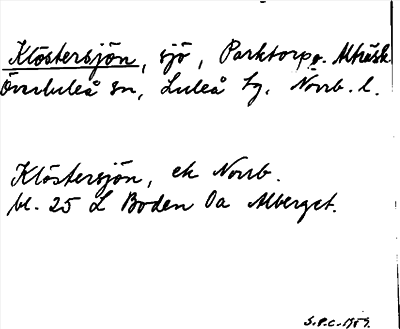 Klöstersjön, sjö, Parktorp o. Alträsk
Överluleå sn, Luleå tg. Norrb. l.
Klöstersjön, ek Norrb.
bl. 25 L Boden Oa Alberget.
S.P.C. 1959.